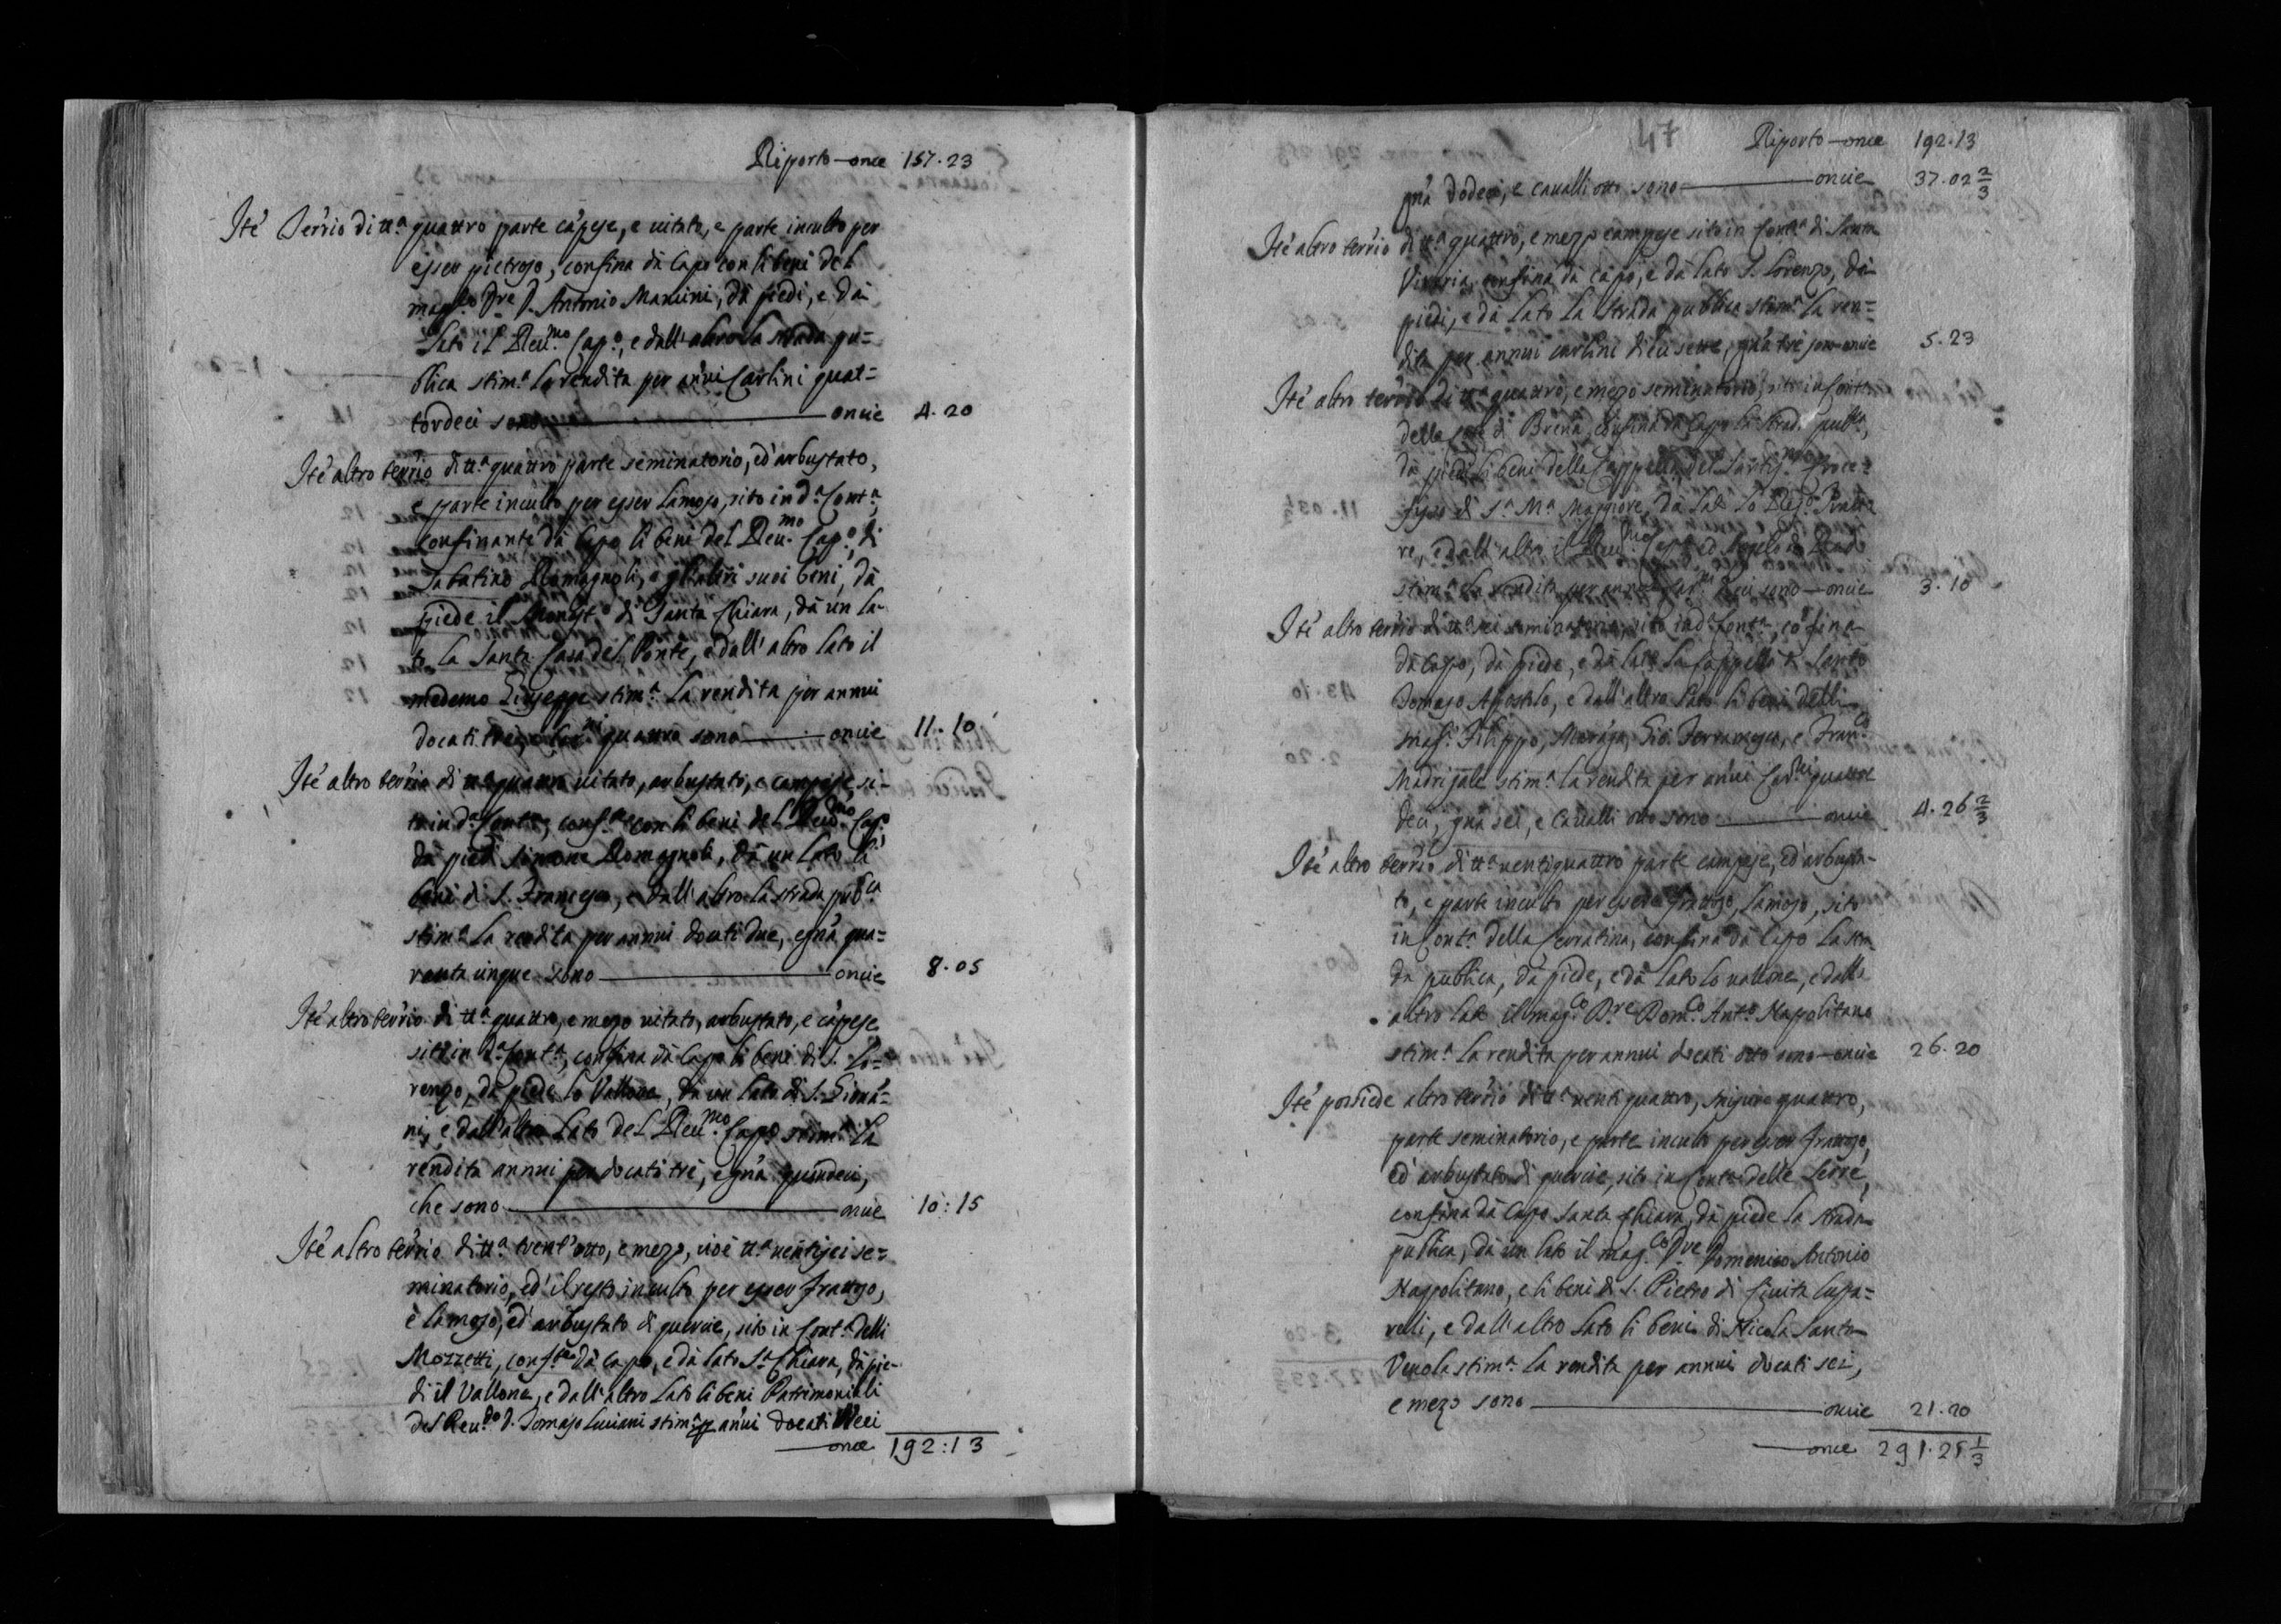 Riporto — once 157.23
Ite' Ter'rio di tt.a quattro parte ca'pese, e vitato, e parte inculto per
esser pietroso, confina dà Capo con li beni del
mag.co D.re D. Antonio Mancini, dà piedi, e dà
lato il Reu.mo Cap.o, e dall'altro la strada pu=
blica stim.a la rendita per an'nui Carlini quat=
tordeci sono — oncie 4.20
Ite' altro ter'rio di tt.a quattro parte seminatorio, ed' arbustato,
e parte inculto per esser lamoso, sito in d.a Cont.a,
confinante dà Capo li beni del Reu.mo Cap.o, di
Sabatino Romagnoli, e gl'altri suoi beni, dà
piede il Monast.o di Santa Chiara, dà un la-
to la Santa Casa del Ponte, e dall'altro lato il
medemo Giuseppe stim.a la rendita per annui
docati trè, e Car.ni quattro sono — oncie 11.10
Ite' altro ter'rio di tt.a quattro vitato, arbustato, e campese, si-
to in d.a Cont.a, conf.te con li beni del Reu.mo Cap.o
dà piedi Simone Romagnoli, dà un lato li
beni di S. Francesco, e dall'altro la strada pub.ca
stim.a la rendita per annui docati due, e gna' qua=
ranta cinque sono — oncie 8.05
Ite' altro ter'rio di tt.a quattro, e mezo vitato, arbustato, e ca'pese
sito in d.a Cont.a, confina dà Capo li beni di S. Lo=
renzo, dà piede lo Vallone, dà un lato di S. Giova'=
ni, e dall'altro lato del Reu.mo Cap.o stim.a la
rendita annui per docati trè, e gna' quindeci,
che sono — oncie 10:15
Ite' altro ter'rio di tt.a trent'otto, e mezo, cioè tt.a ventisei se=
minatorio, ed' il resto inculto per esser frattoso,
e lamoso, ed' arbustato di quercie, sito in Cont.a delli
Mozzetti, conf.te dà capo, e dà lato S.a Chiara, dà pie-
di il Vallone, e dall'altro lato li beni Patrimoniali
del Reu.do D. Tomaso Luciani stim.a per an'nui docati Undeci
— once 192:13
47
Riporto — once 192.13
gna' dodeci, e cavalli otto sono — oncie 37.02 2/3
Ite' altro ter'rio di tt.a quattro, e mezo campese sito in Cont.a di Santa
Vivaria, confina dà capo, e dà lato S. Lorenzo, dà
piedi, e dà lato la strada publica stim.a la ren=
dita per annui carlini dieci sette, gna' trè sono oncie 5.23
Ite' altro ter'rio di tt.a quattro, e mezo seminatorio, sito in Cont.a
della di Brena, confina dà Capo la strada pub.ca,
dà piedi li beni della Cappella del Santiss.mo Croce=
fisso di S.a M.a Maggiore, dà lato lo
re, e dall'altro il Reu.mo Cap.o, ed Angelo
stim.a la rendita per annui Car.ni dieci sono — oncie 3.10
Ite' altro ter'rio di tt.a sei seminatorio, sito in d.a Cont.a, co'fina
dà Capo, dà piede, e dà lato la Cappella di Santo
Tomaso Apostolo, e dall'altro lato li beni delli
Filippo, Gio: e Fran.co
Madrigale stim.a la rendita per an'nui Car.ni quattor
deci, gna' sei, e Cavalli otto sono — oncie 4.26 2/3
Ite' altro ter'rio di tt.a ventiquattro parte campese, ed' arbusta-
to, e parte inculto per essere frattoso, lamoso, sito
in Cont.a della Cerratina, confina dà Capo la stra-
da publica, dà piede, e dà lato lo vallone, e dall'
altro lato il mag.co D.re Dom.co Ant.o Napolitano
stim.a la rendita per annui docati otto sono — oncie 26.20
Ite' possiede altro ter'rio di tt.a ventiquattro, misure quattro,
parte seminatorio, e parte inculto per esser frattoso,
ed' arbustato di quercie, sito in Cont.a delle Serre,
confina dà Capo Santa Chiara, dà piede la strada
publica, dà un lato il mag.co D.re Domenico Antonio
Nappolitano, e li beni di S. Pietro di Civita lupa=
relli, e dall'altro lato li beni di Nicola Santo
Venola stim.a la rendita per annui docati sei,
e mezo sono — oncie 21.20
— once 291.25 1/3